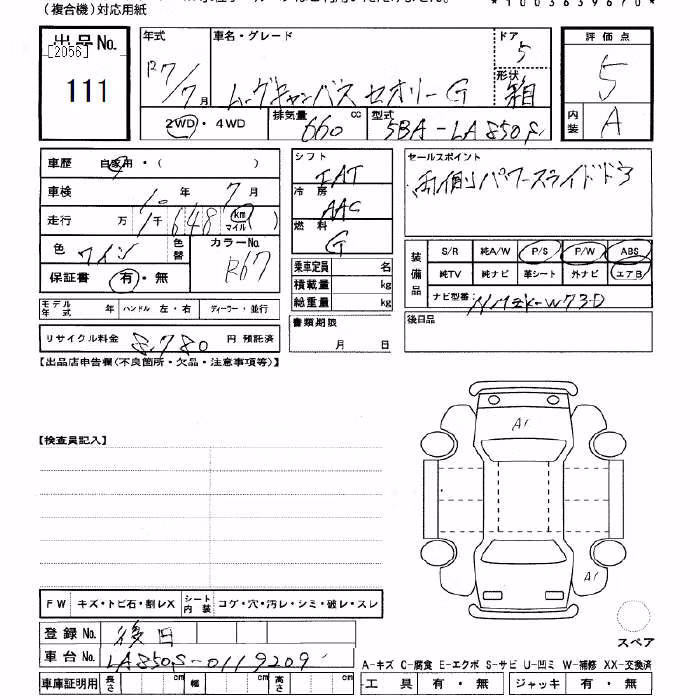 (複合機)対応用紙
出品No.
[2056]
111
年式
R7/7月
車名・グレード
ムーヴキャンバス セオリーG
ドア
5
形状
箱
評価点
5
内装
A
2WD・4WD
排気量
660 cc
型式
5BA-LA850S
車歴 自家用・( )
車検 10年 7月
走行 万 1千648 (km マイル)
色 ワイン
色替
カラーNo.
R67
保証書 有・無
シフト
IAT
冷房
AAC
燃料
G
乗車定員 名
積載量 kg
総重量 kg
セールスポイント
両側パワースライドドア
装備品
S/R 純A/W P/S P/W ABS
純TV 純ナビ 革シート 外ナビ エアB
ナビ型番: NMZK-W73D
モデル年式 年 ハンドル 左・右 ディーラー・並行
リサイクル料金 8,780 円 預託済
書類期限
月 日
後日品
【出品店申告欄(不良箇所・欠品・注意事項等)】
A1
【検査員記入】
A1
FW キズ・トビ石・割レX シート内装 コゲ・穴・汚レ・シミ・破レ・スレ
登録No. 後日
スペア
車台No. LA850S-0119209
A-キズ C-腐食 E-エクボ S-サビ U-凹ミ W-補修 XX-交換済
車庫証明用 長さ cm 幅 cm 高さ cm
工具 有・無 ジャッキ 有・無